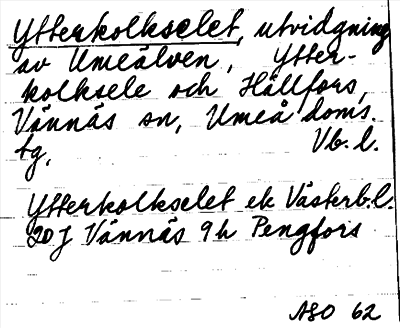 Ytterkolkselet, utvidgning
av Umeälven, Ytter-
kolksele och Hällfors,
Vännäs sn, Umeå doms.
tg, Vb. l.
Ytterkolkselet ek Västerb.l.
20J Vännäs 9h Pengfors
ASO 62